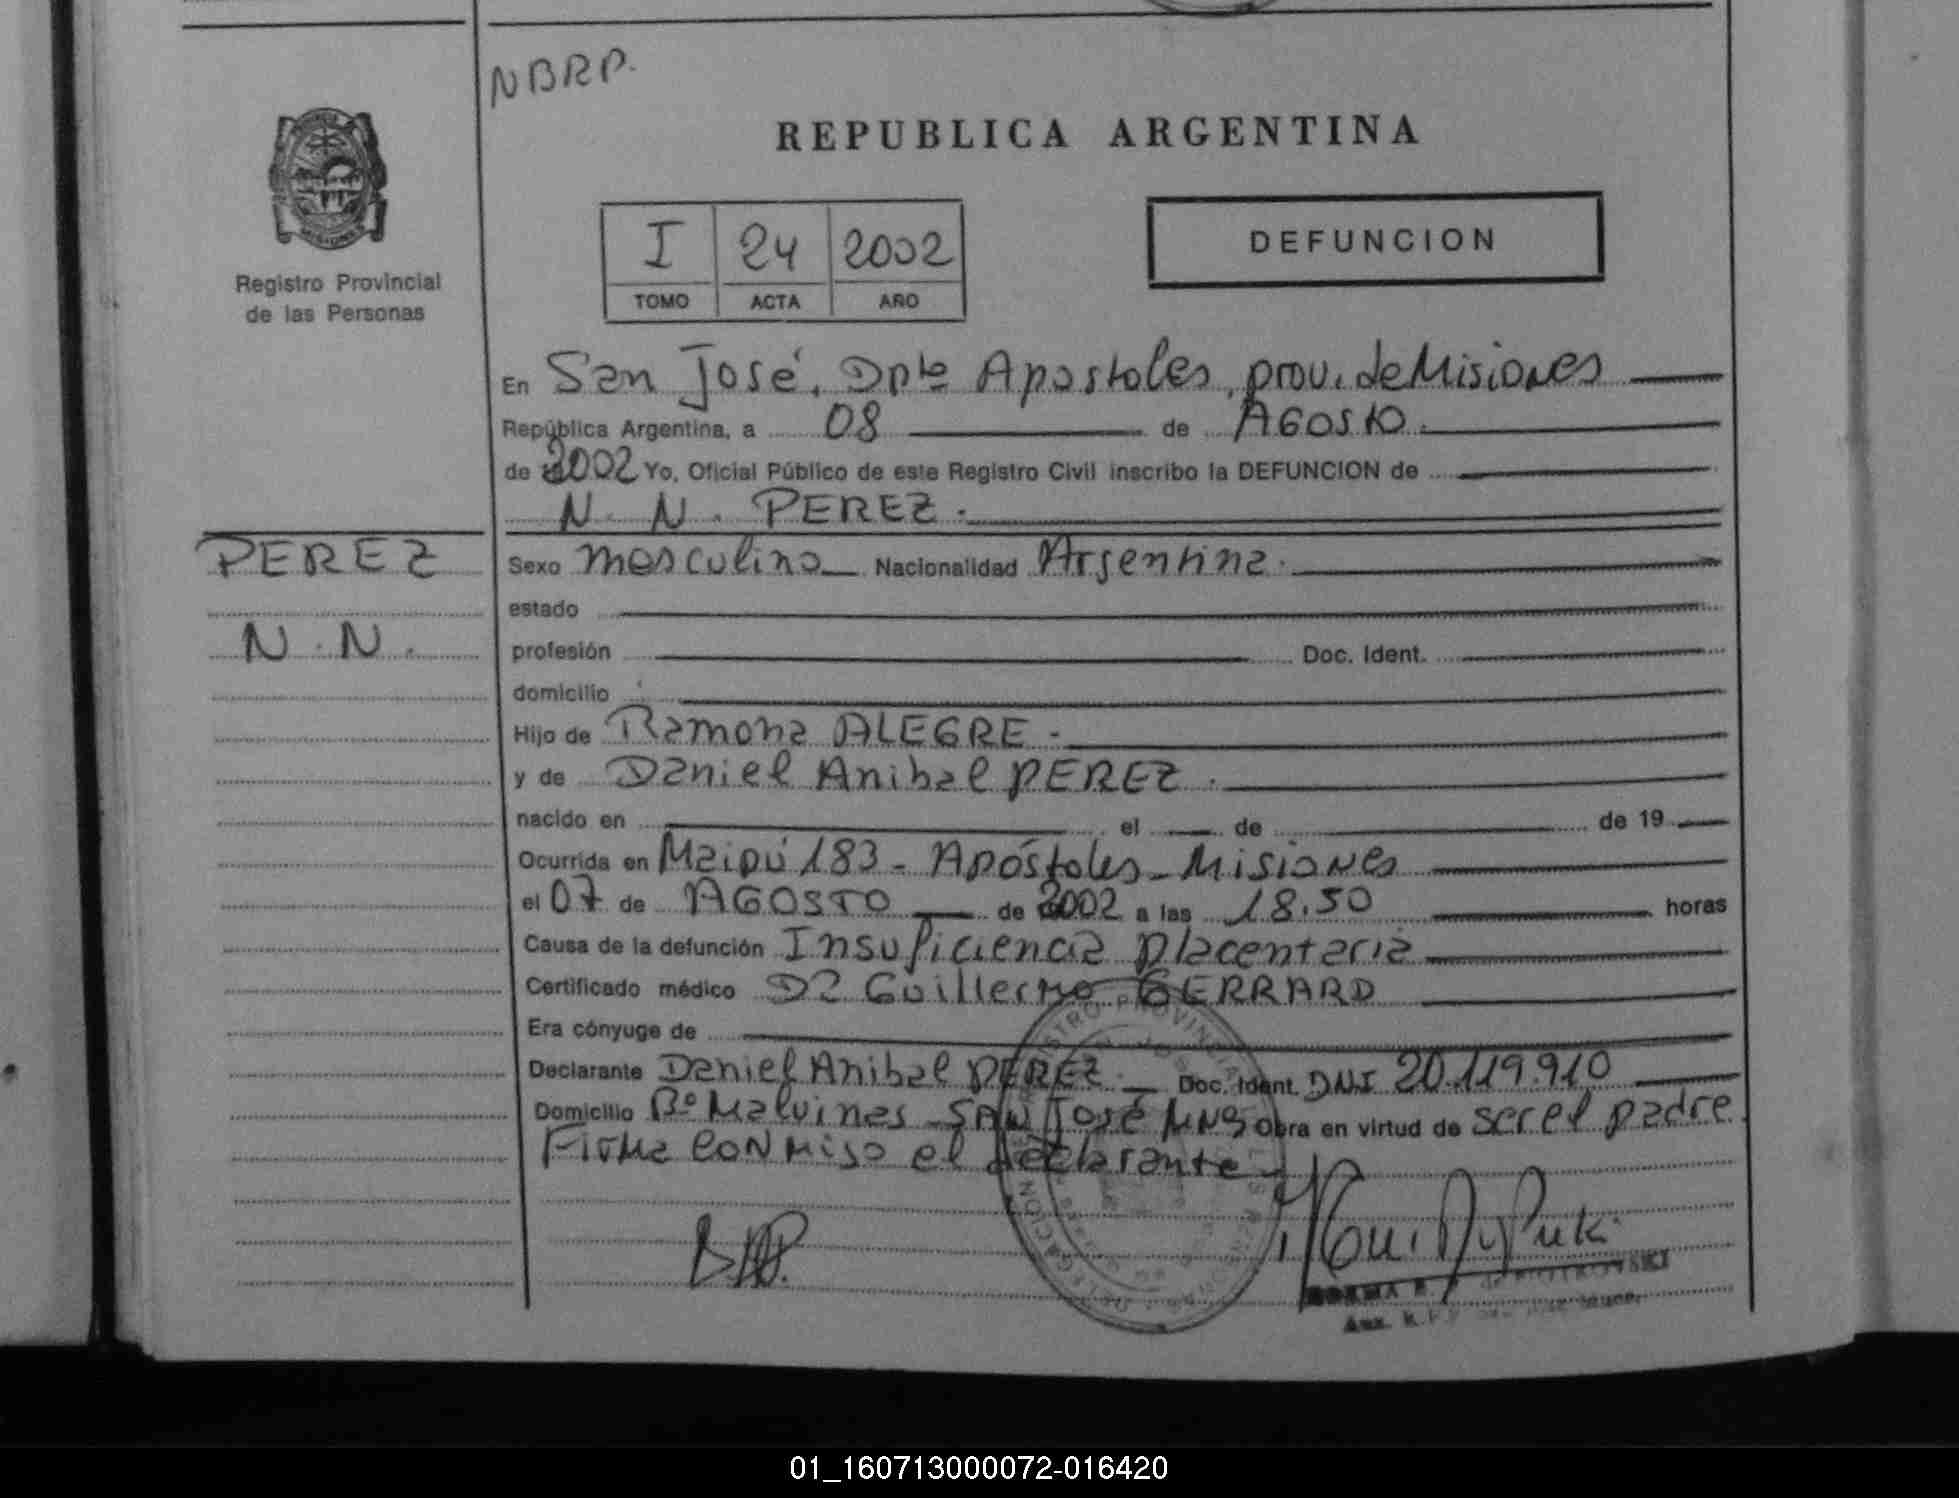 NBRP.
REPUBLICA ARGENTINA
MISIONES
Registro Provincial
de las Personas
I 24 2002
TOMO ACTA AÑO
DEFUNCION
En San José, Dpto Apostoles, prov. de Misiones
República Argentina, a 08 de AGOSTO.
de 2002 Yo, Oficial Público de este Registro Civil inscribo la DEFUNCION de
N. N. PEREZ.
PEREZ
N. N.
Sexo masculino Nacionalidad Argentina.
estado
profesión Doc. Ident.
domicilio
Hijo de Ramona ALEGRE.
y de Daniel Anibal PEREZ.
nacido en el de de 19
Ocurrida en Maipú 183 - Apóstoles - Misiones
el 07 de AGOSTO de 2002 a las 18.50 horas
Causa de la defunción Insuficiencia placentaria
Certificado médico Dr Guillermo GERRARD
Era cónyuge de
Declarante Daniel Anibal PEREZ. Doc. Ident. DNI 20.119.910
Domicilio Bº Malvinas - SAN José MNS Obra en virtud de ser el padre.
Firma conmigo el declarante
01_160713000072-016420